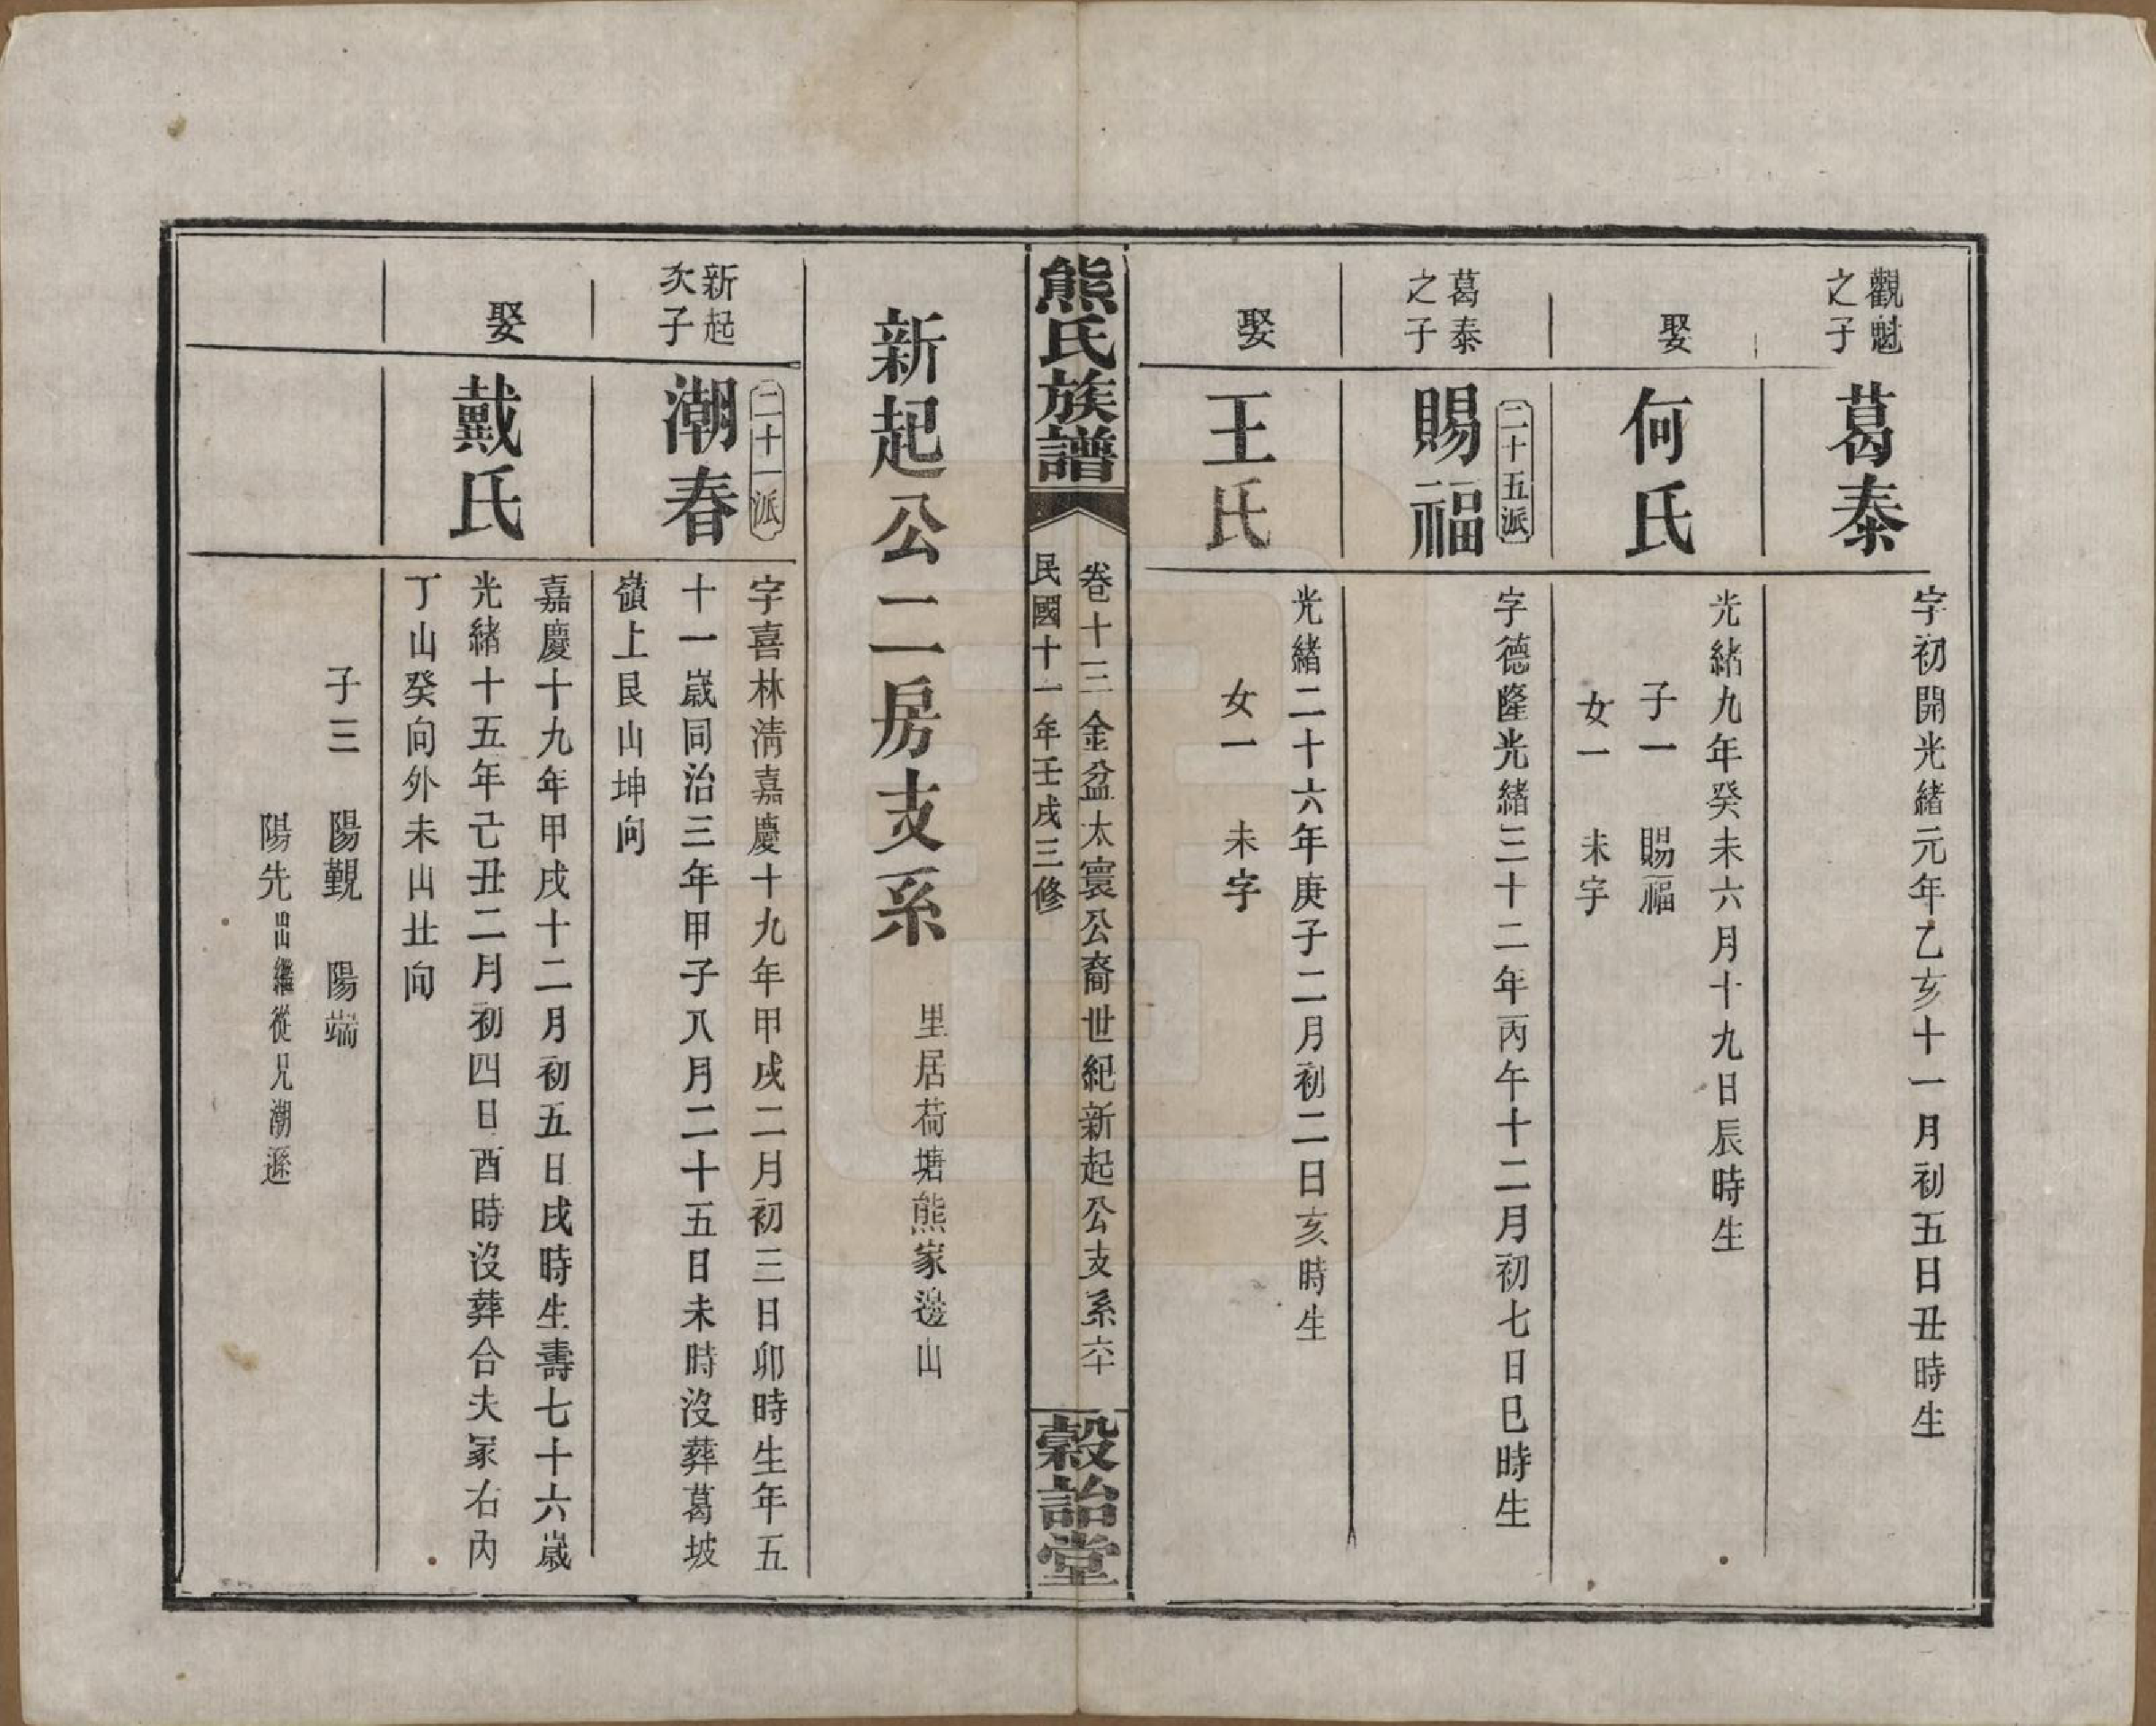 觀魁
之子
葛泰
字初開光緒元年乙亥十一月初五日丑時生
娶
何氏
光緒九年癸未六月十九日辰時生
子一　賜福
女一　未字
葛泰
之子
二十五派
賜福
字德隆光緒三十二年丙午十二月初七日巳時生
娶
王氏
光緒二十六年庚子二月初二日亥時生
女一　未字
熊氏族譜
卷十三金盆太寰公裔世紀新起公支系六十
民國十一年壬戌三修
穀詒堂
新起公二房支系
里居荷塘熊家邊山
新起
次子
二十一派
潮春
字喜林淸嘉慶十九年甲戌二月初三日卯時生年五
十一歲同治三年甲子八月二十五日未時沒葬葛坡
嶺上艮山坤向
娶
戴氏
嘉慶十九年甲戌十二月初五日戌時生壽七十六歲
光緒十五年己丑二月初四日酉時沒葬合夫冡右內
丁山癸向外未山丑向
子三　陽觀　陽端
陽先出繼從兄潮遜